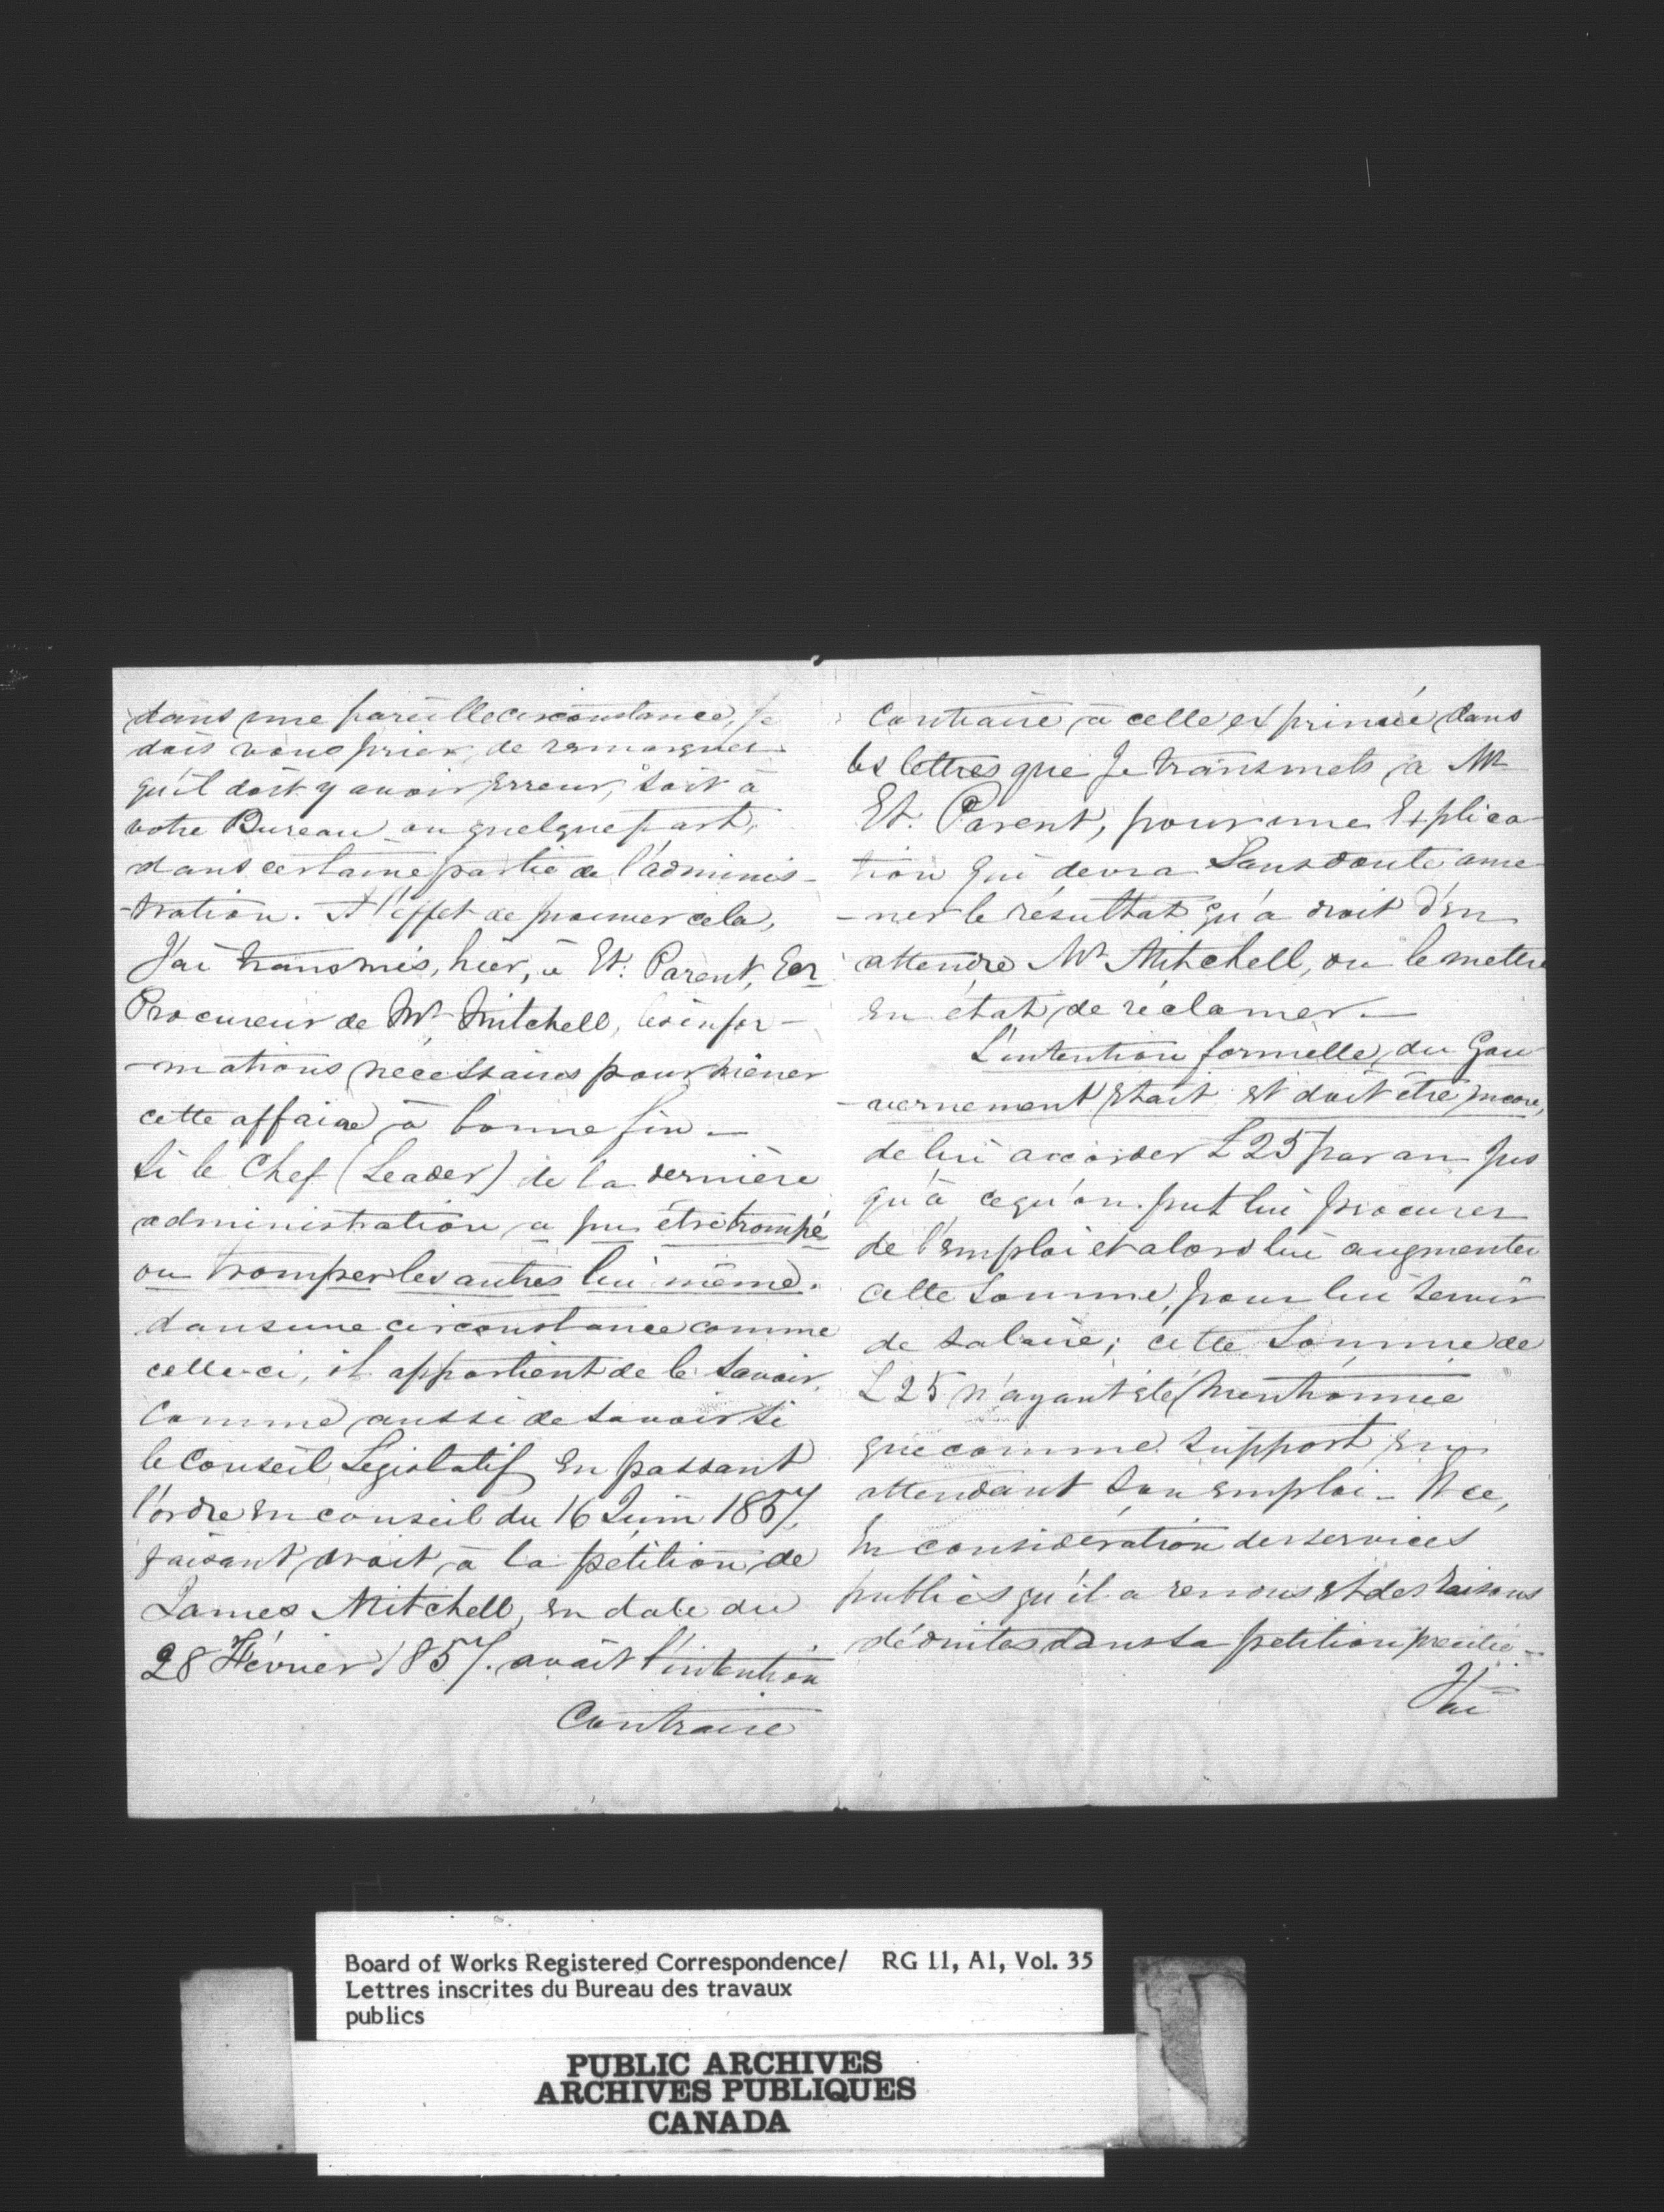 dans une pareille circonstance, je
dois vous prier, de remarquer
qu'il doit y avoir erreur, soit à
votre Bureau ou quelque part,
dans certaine partie de l'adminis-
-tration. A l'effet de prouver cela,
J'ai transmis, hier, à Et. Parent, Ecr
Procureur de Mr Mitchell, les infor-
-mations nécessaires pour mener
cette affaire à bonne fin —
Si le Chef (Leader) de la dernière
administration a pu être trompé
ou tromper les autres lui même.
dans une circonstance comme
celle-ci, il appartient de le savoir,
comme aussi de savoir si
le Conseil Législatif en passant
l'ordre en conseil du 16 Juin 1857,
faisant droit, à la pétition de
James Mitchell, en date du
28 Février 1857. avait l'intention
Contraire
Contraire à celle exprimée dans
les lettres que je transmets à Mr
Et. Parent, pour une Explica-
tion qui devra Sans doute ame-
-ner le résultat qu'a droit d'en
attendre Mr Mitchell, ou le mettre
en état de réclamer. —
L'intention formelle du Gou-
-vernement était et doit être encore,
de lui accorder £25 par an jus
qu'à ce qu'on put lui procurer
de l'emploi et alors lui augmenter
cette Somme, pour lui servir
de salaire; cette Somme de
£25 n'ayant été mentionnée
que comme support en
attendant son emploi — Et ce,
En considération des services
publics qu'il a rendus et des raisons
déduites dans sa petition précitée —
J'ai
Board of Works Registered Correspondence/ RG 11, A1, Vol. 35
Lettres inscrites du Bureau des travaux
publics
PUBLIC ARCHIVES
ARCHIVES PUBLIQUES
CANADA